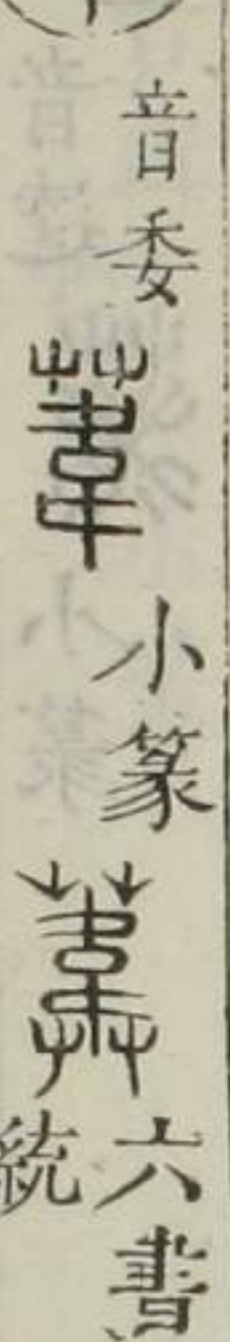 音委
葦 小篆
葦 六書
統